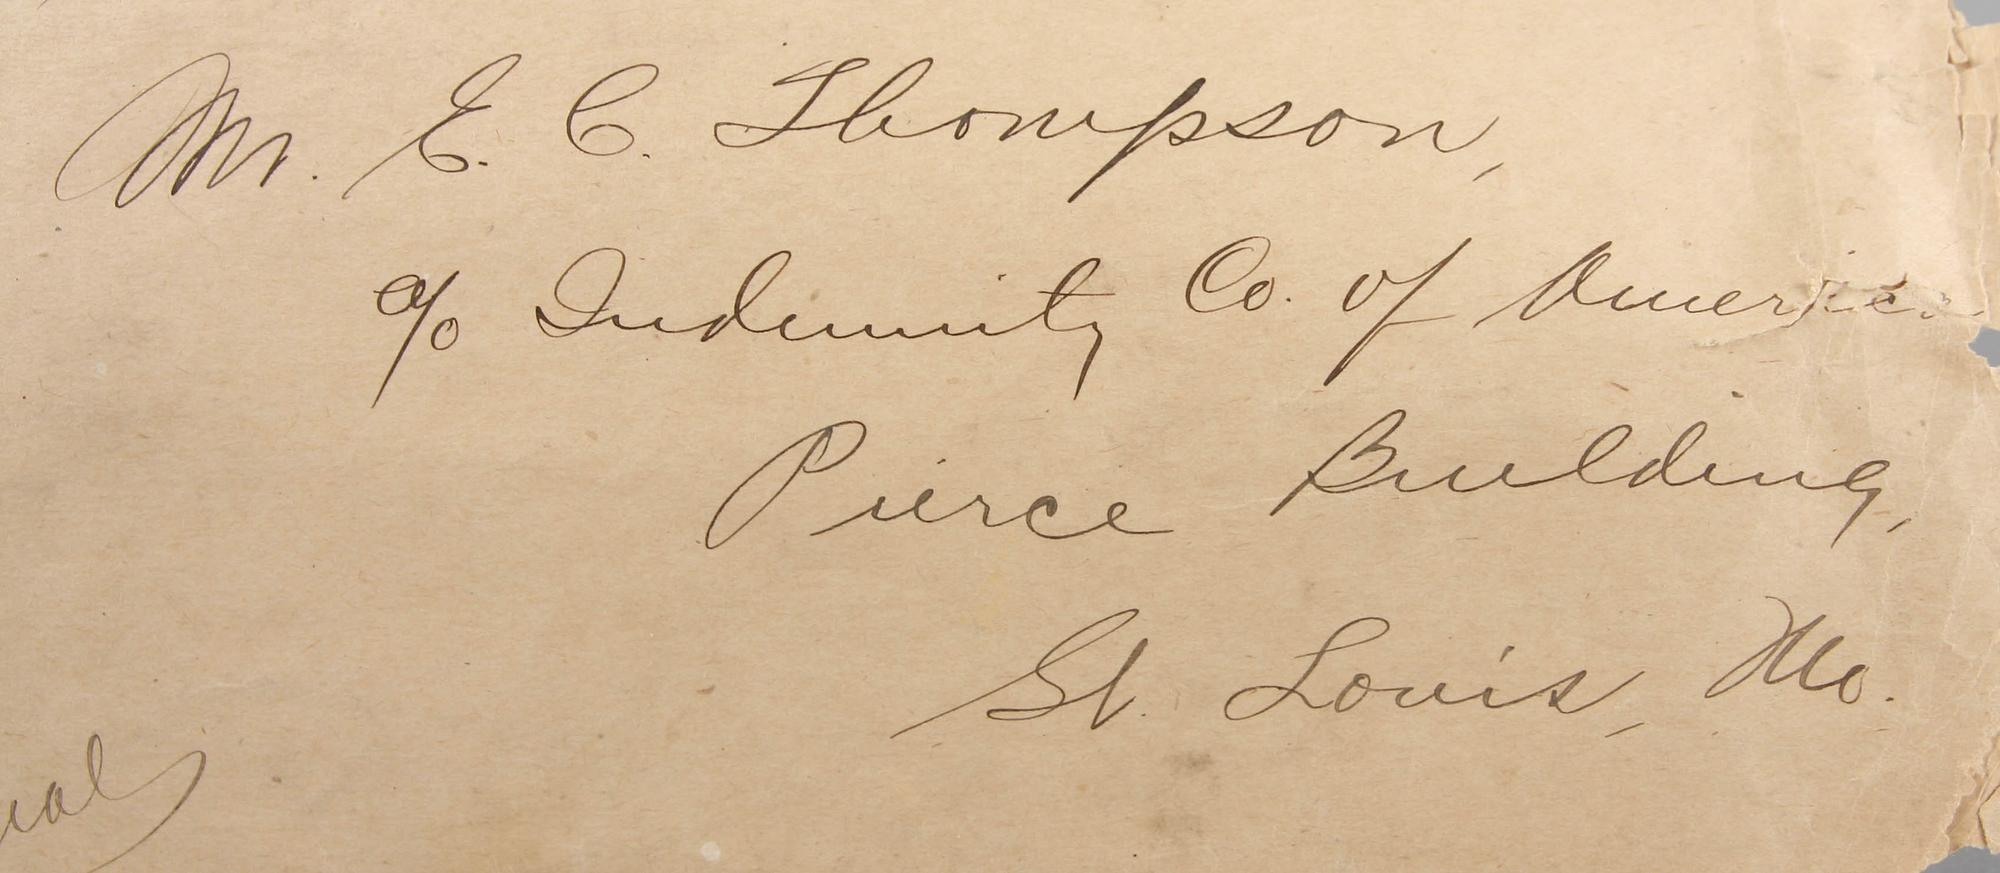 Mr. E. C. Thompson,
c/o Indemnity Co. of America
Pierce Building,
St. Louis, Mo.